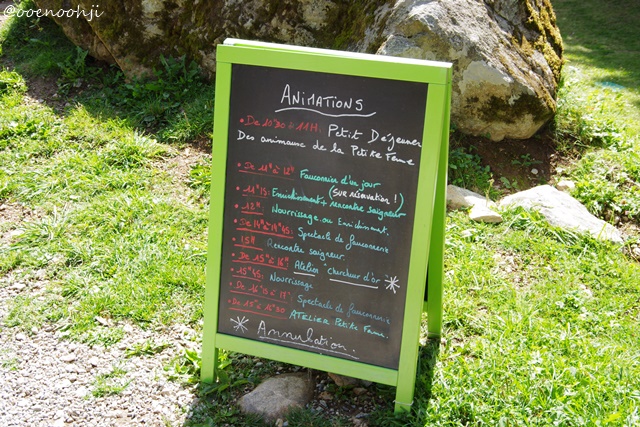 @ooenoohji
ANIMATIONS
• De 10H30 à 11H: Petit Déjeuner
Des animaux de la Petite Ferme
• De 11H à 12H Fauconnier d'un jour
(sur réservation !)
11H15: Enrichissement + rencontre soigneur
• 12H: Nourrissage ou Enrichissement.
• De 14H à 14H45: Spectacle de fauconnerie
• 15H: Rencontre soigneur.
• De 15H à 16H: Atelier "chercheur d'or"
• 15H45: Nourrissage
• De 16H15 à 17H: Spectacle de fauconnerie
• De 15H à 15H30 ATELIER Petite Ferme.
Annulation.